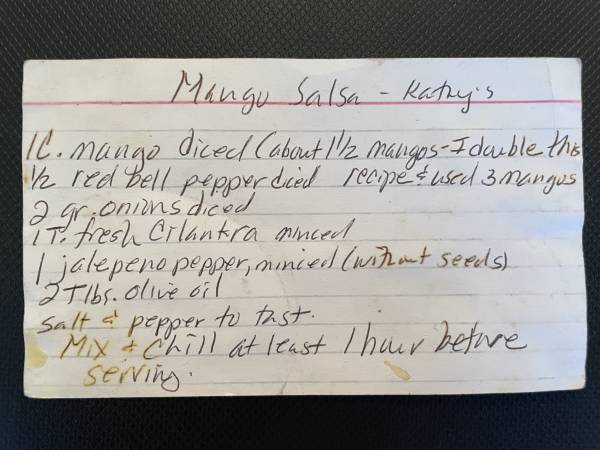 Mango Salsa - Kathy's
1C. mango diced (about 1 1/2 mangos - I double this
1/2 red bell pepper died recipe & used 3 mangos
2 gr. onions diced
1 T. fresh Cilantra minced
1 jalepeno pepper, minced (without seeds)
2 Tlbs. olive oil
salt & pepper to tast.
Mix & Chill at least 1 hour before
serving.